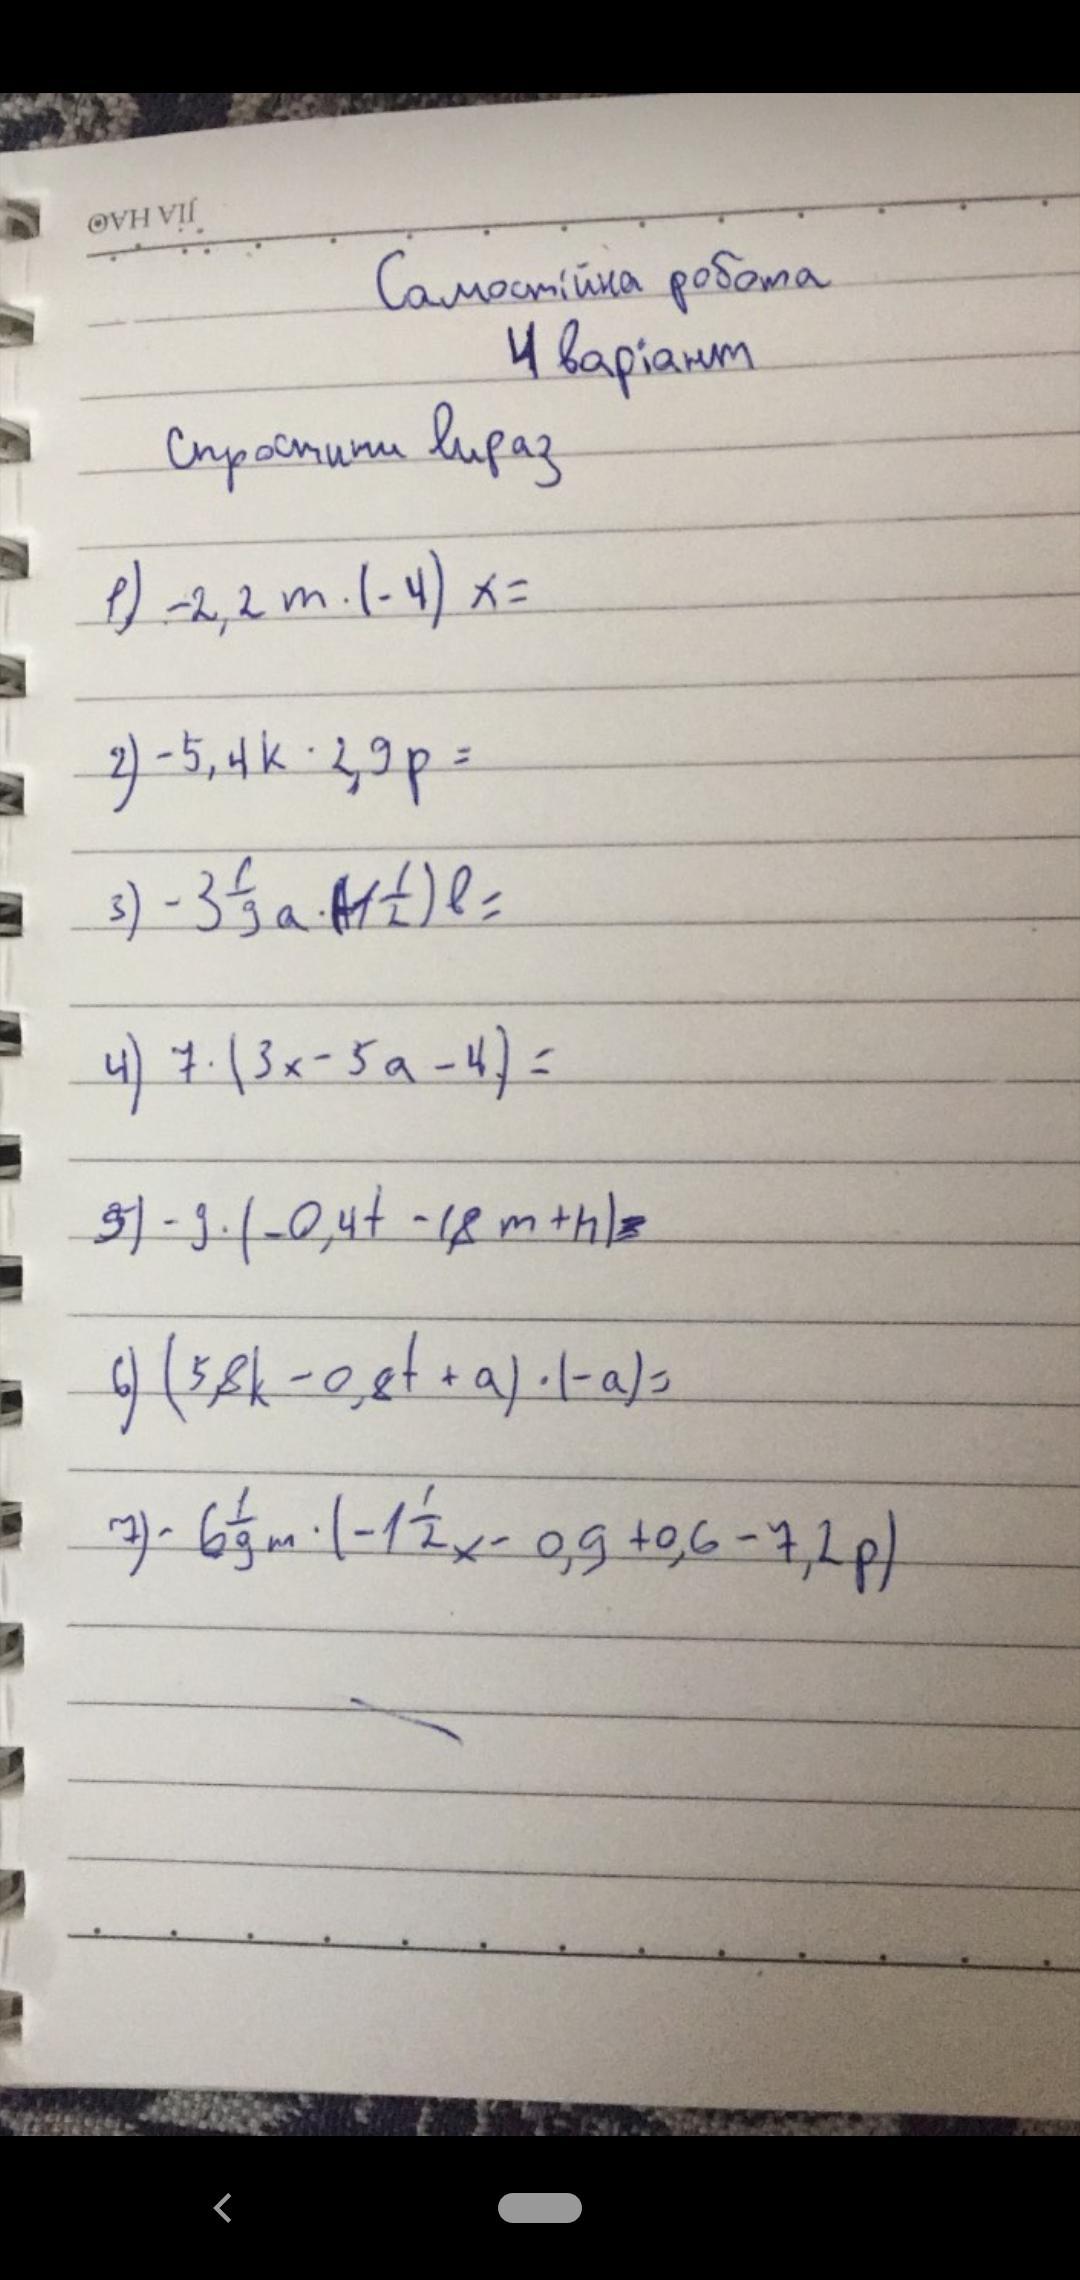 JIA HAO
Самостійна робота
4 варіант
Спростити вираз
1) -2,2 m · (-4) x =
2) -5,4k · 2,9p =
3) -3 1/9 a · (-1 1/2) b =
4) 7 · (3x - 5a - 4) =
5) -9 · (-0,4t - 1,8m + n) =
6) (5,8k - 0,8t + a) · (-a) =
7) - 6 1/9 m · (-1 1/2 x - 0,9 + 0,6 - 7,2p)